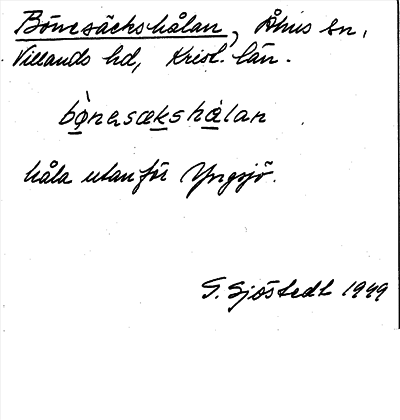 Bönesäckshålan, Åhus sn,
Villands hd, Krist. län.
bø̀nəsækshålan
håla utanför Yngsjö.
G. Sjöstedt 1949